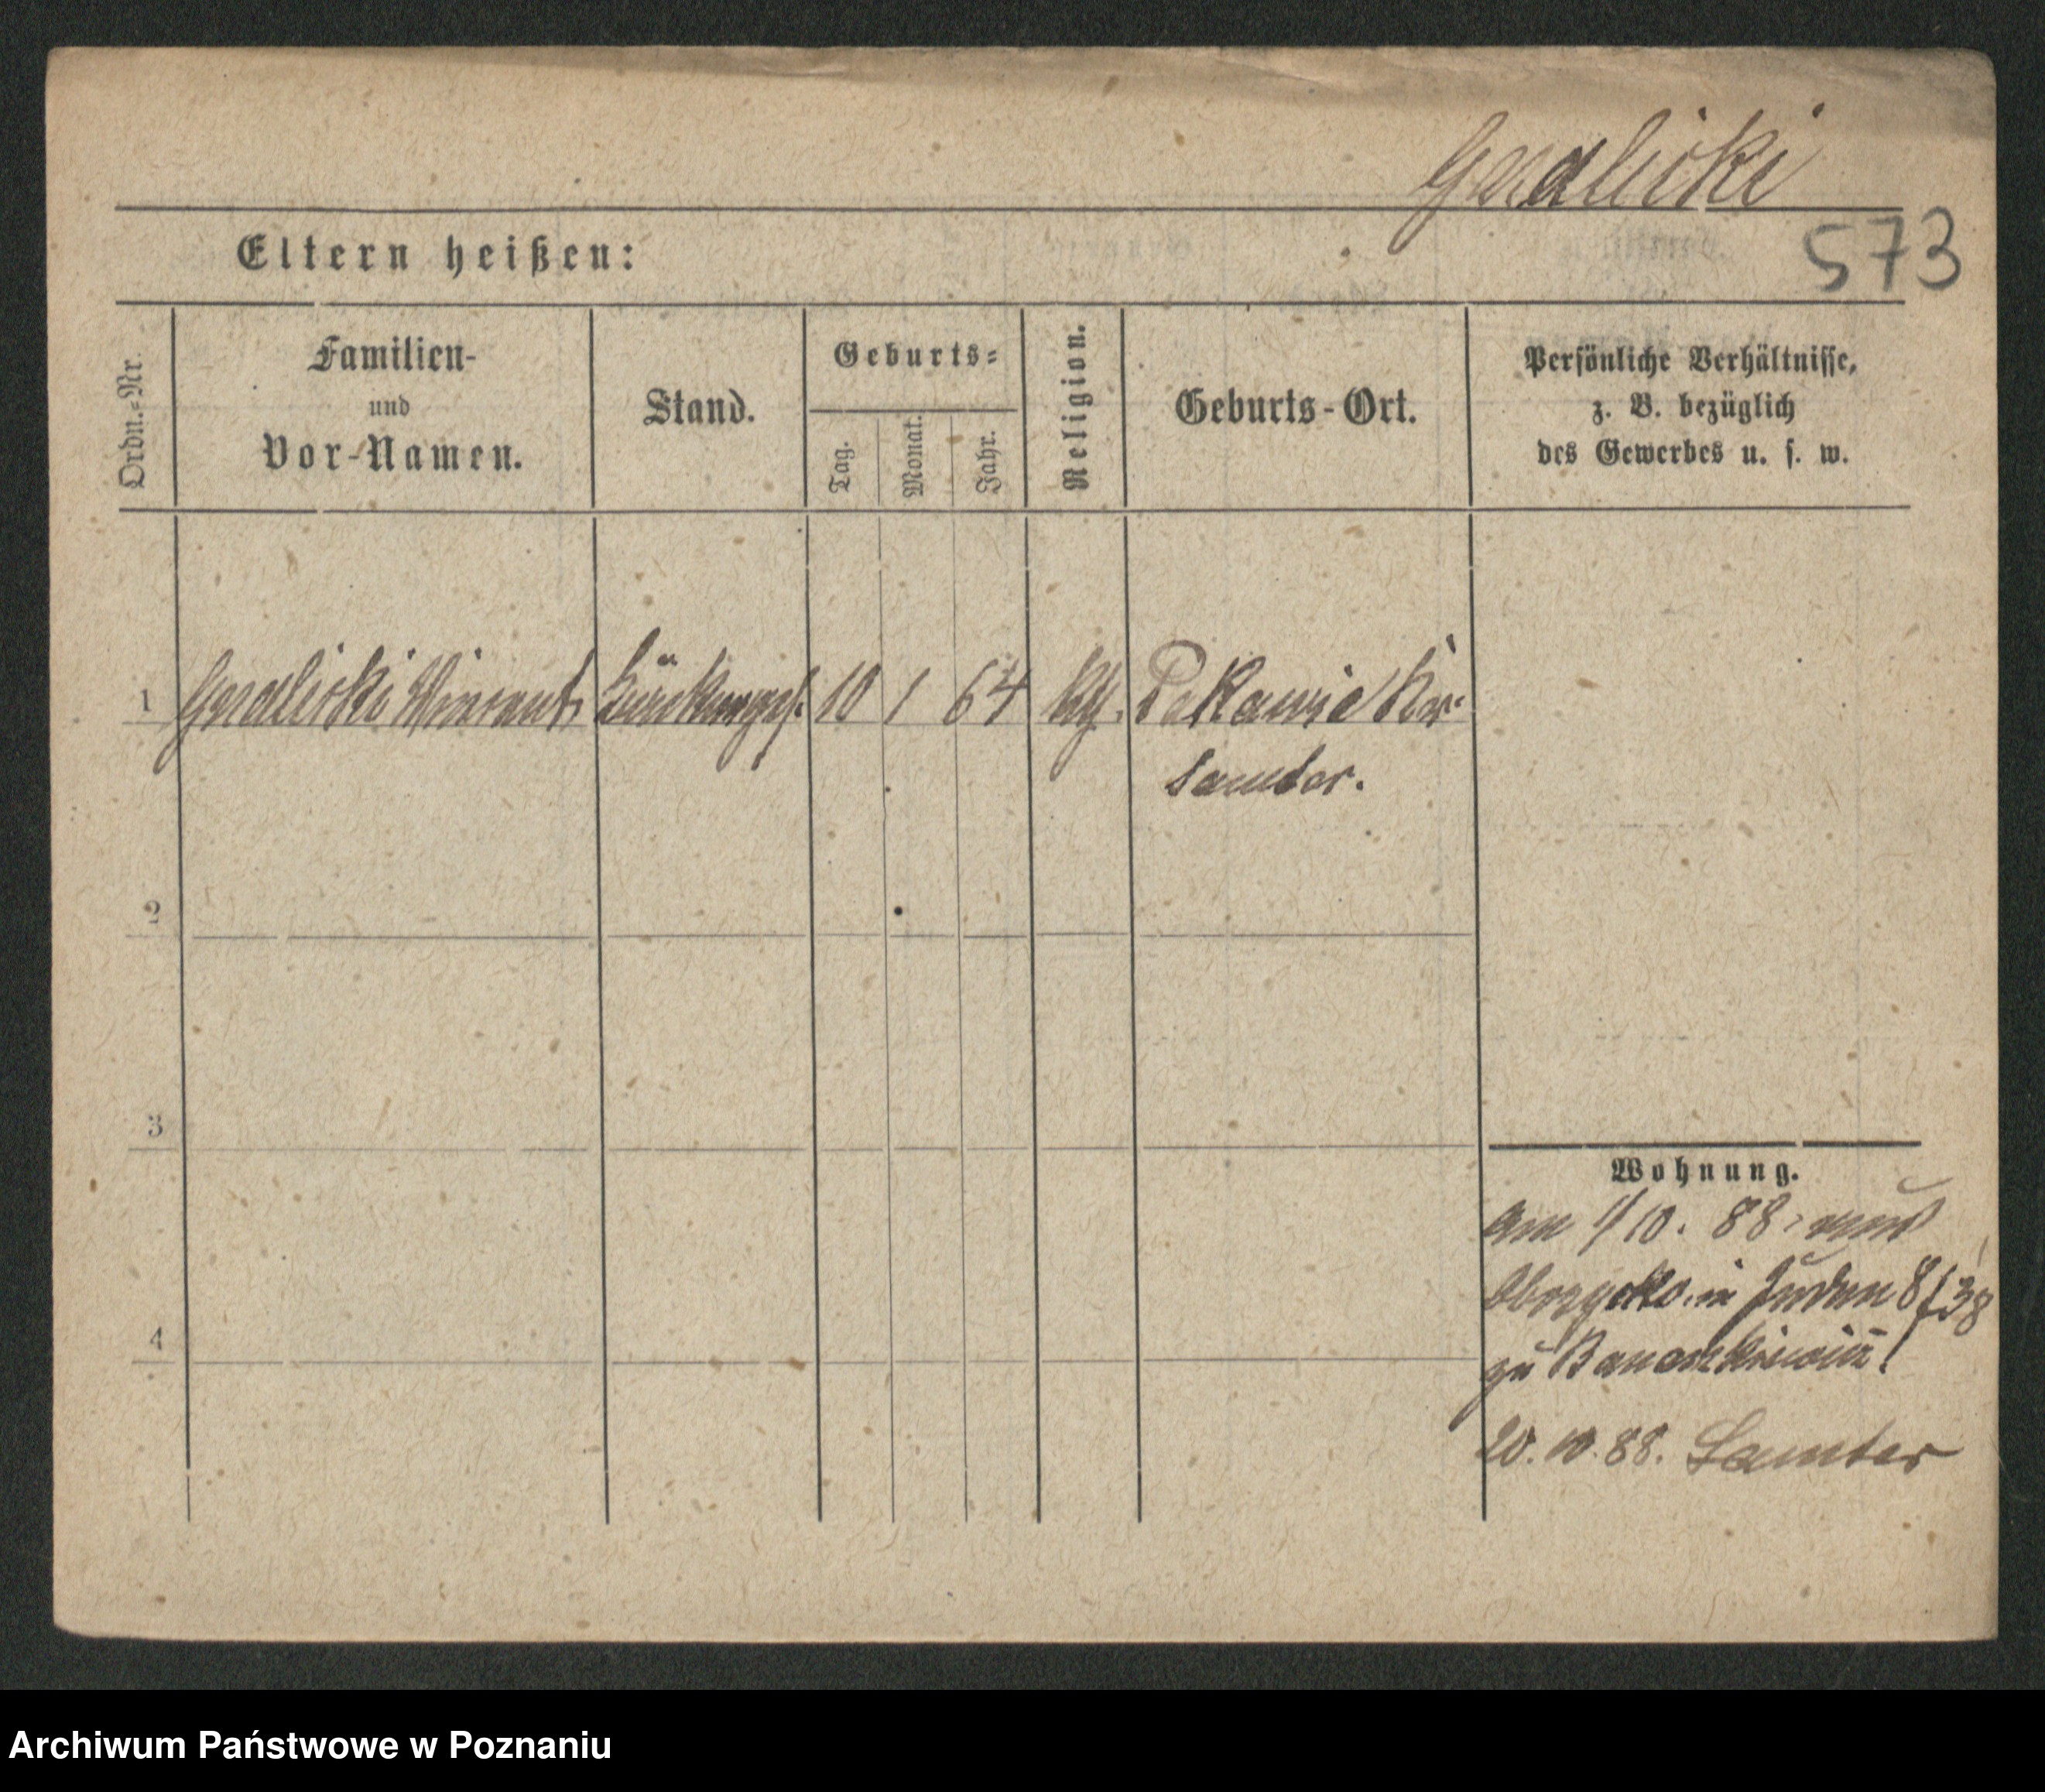 Gralicki
573
Eltern heißen:
Ordn.=Nr.
Familien-
und
Vor-Namen.
Stand.
Geburts=
Tag.
Monat.
Jahr.
Religion.
Geburts-Ort.
Persönliche Verhältnisse,
z. B. bezüglich
des Gewerbes u. s. w.
1 Gralicki Vincent 10 1 64 kth. Pekawie Kr.
Samter.
2
3
Wohnung.
am 1/10. 88. aus
Obrzycko in Juden 8/38
4
zu
20. 10. 88. Samter
Archiwum Państwowe w Poznaniu